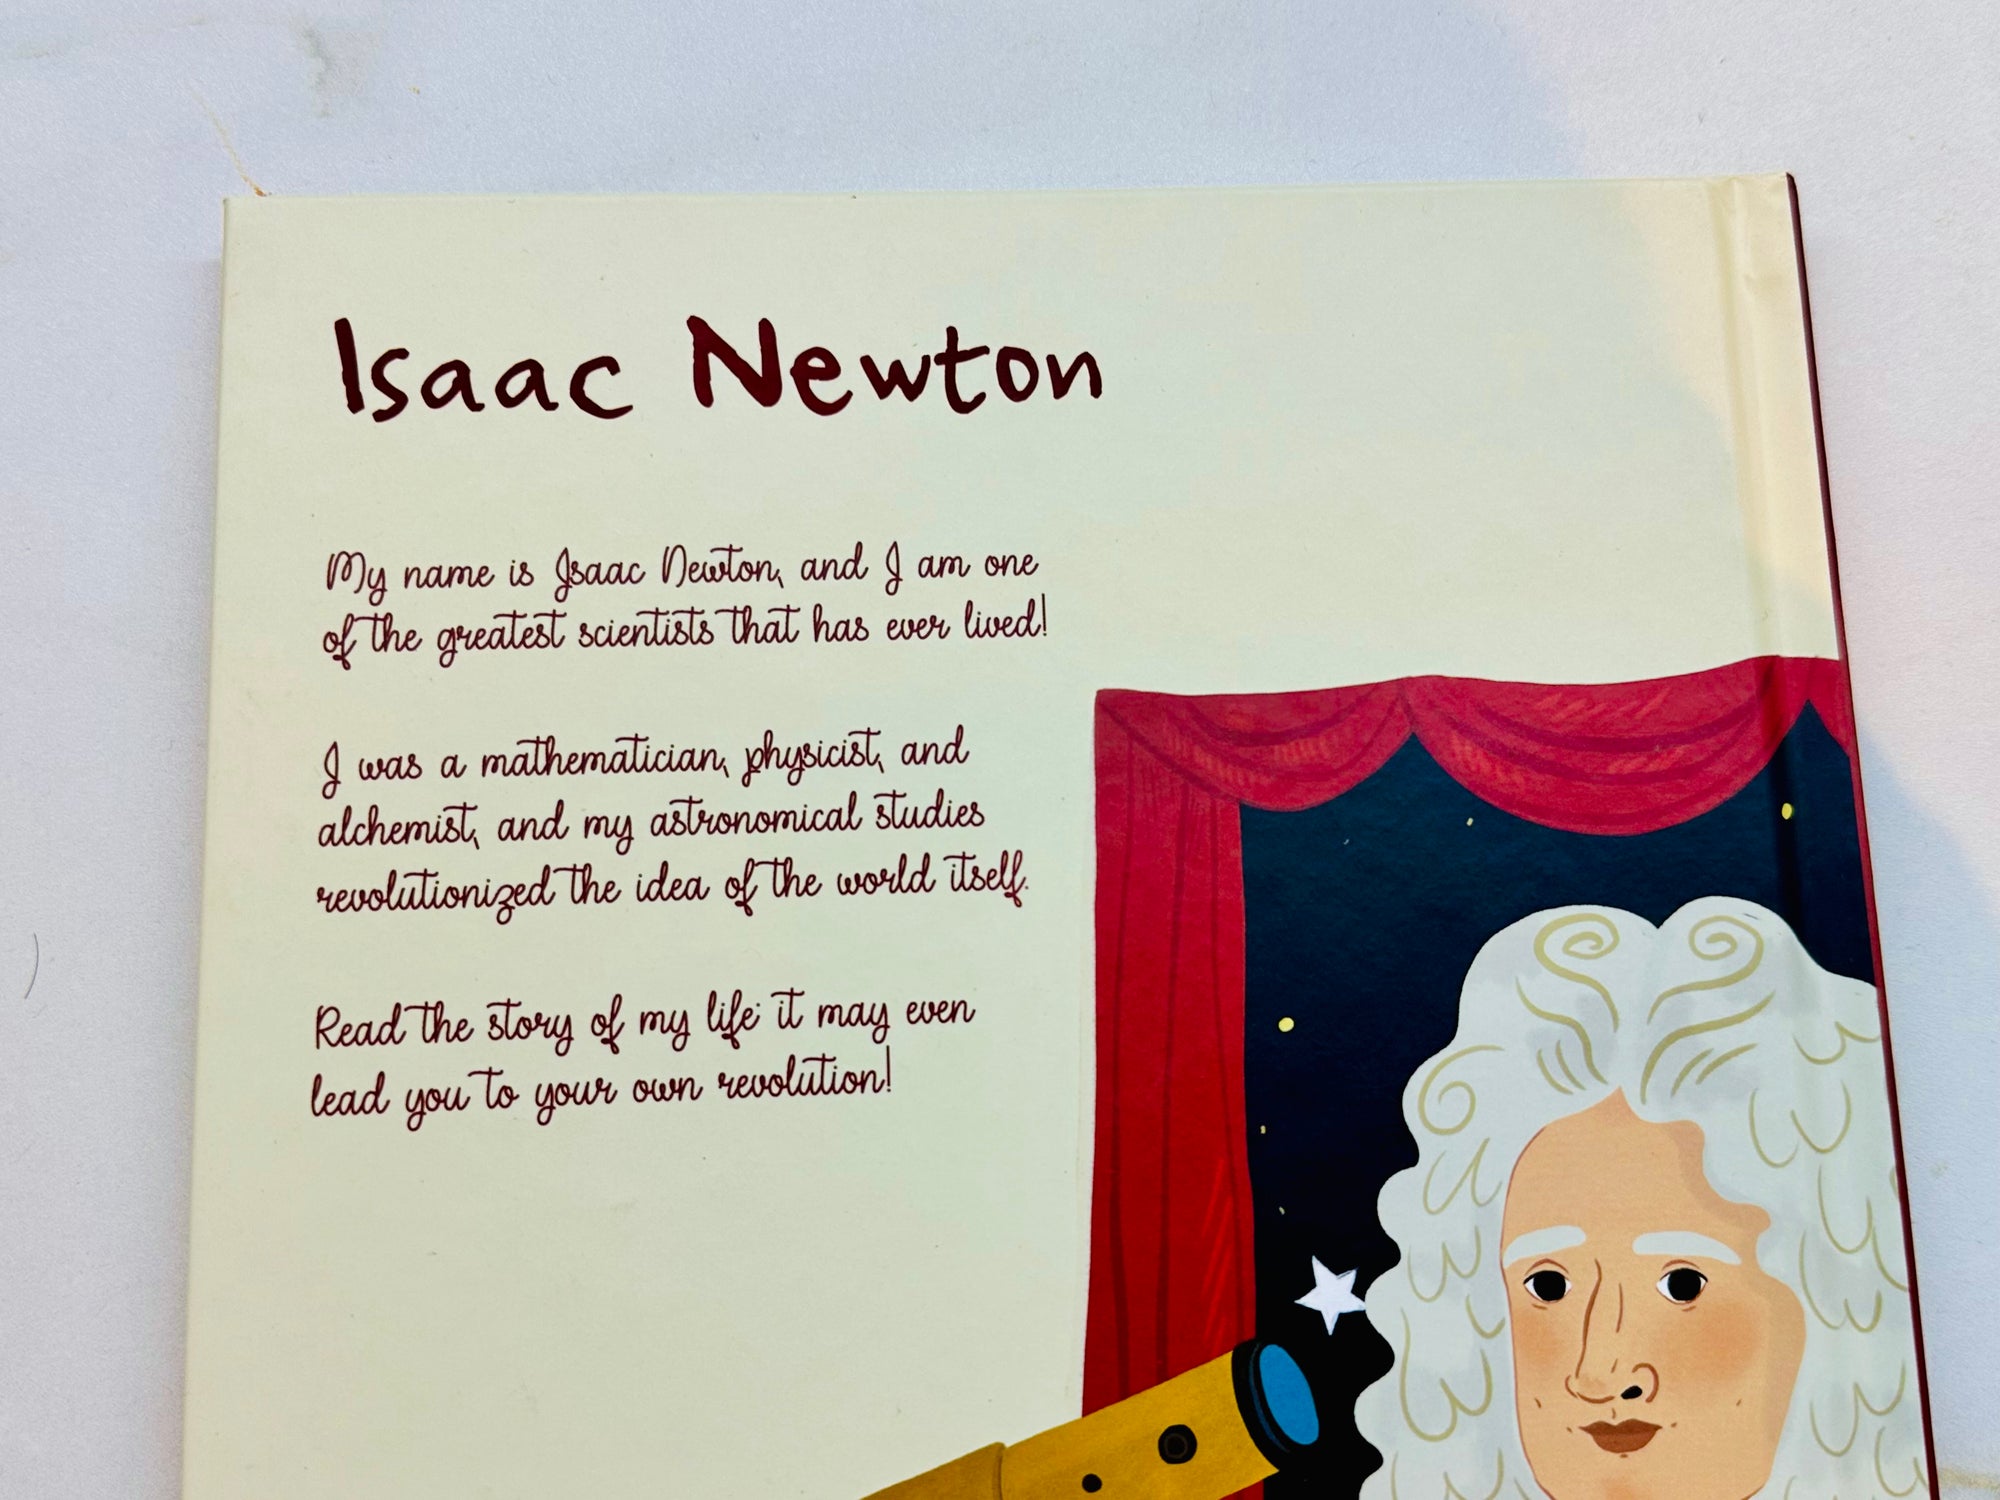 Isaac Newton
My name is Isaac Newton, and I am one
of the greatest scientists that has ever lived!
I was a mathematician, physicist, and
alchemist, and my astronomical studies
revolutionized the idea of the world itself.
Read the story of my life: it may even
lead you to your own revolution!